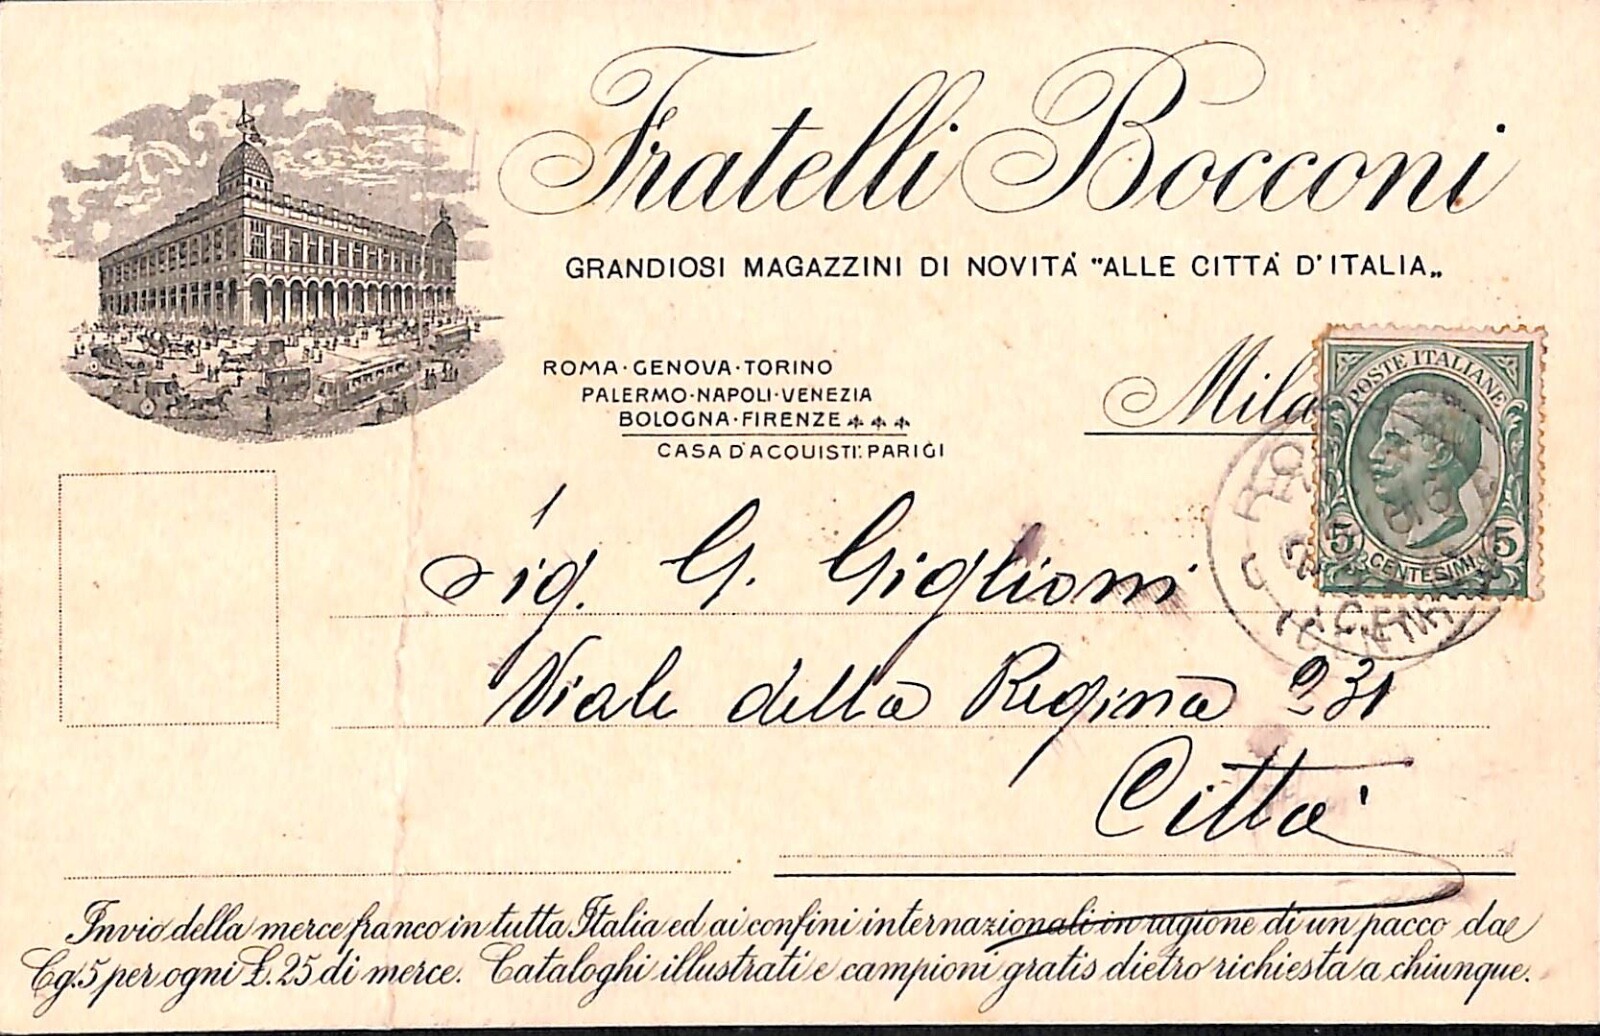 Fratelli Bocconi
GRANDIOSI MAGAZZINI DI NOVITÀ "ALLE CITTÀ D'ITALIA„
ROMA·GENOVA·TORINO
PALERMO·NAPOLI·VENEZIA
BOLOGNA·FIRENZE
CASA D'ACQUISTI: PARIGI
Mila
POSTE ITALIANE
5 CENTESIMI 5
Sig. G. Giglioni
Viale della Regina 231
Città
Invio della merce franco in tutta Italia ed ai confini internazionali in ragione di un pacco da
Cg. 5 per ogni £. 25 di merce. Cataloghi illustrati e campioni gratis dietro richiesta a chiunque.